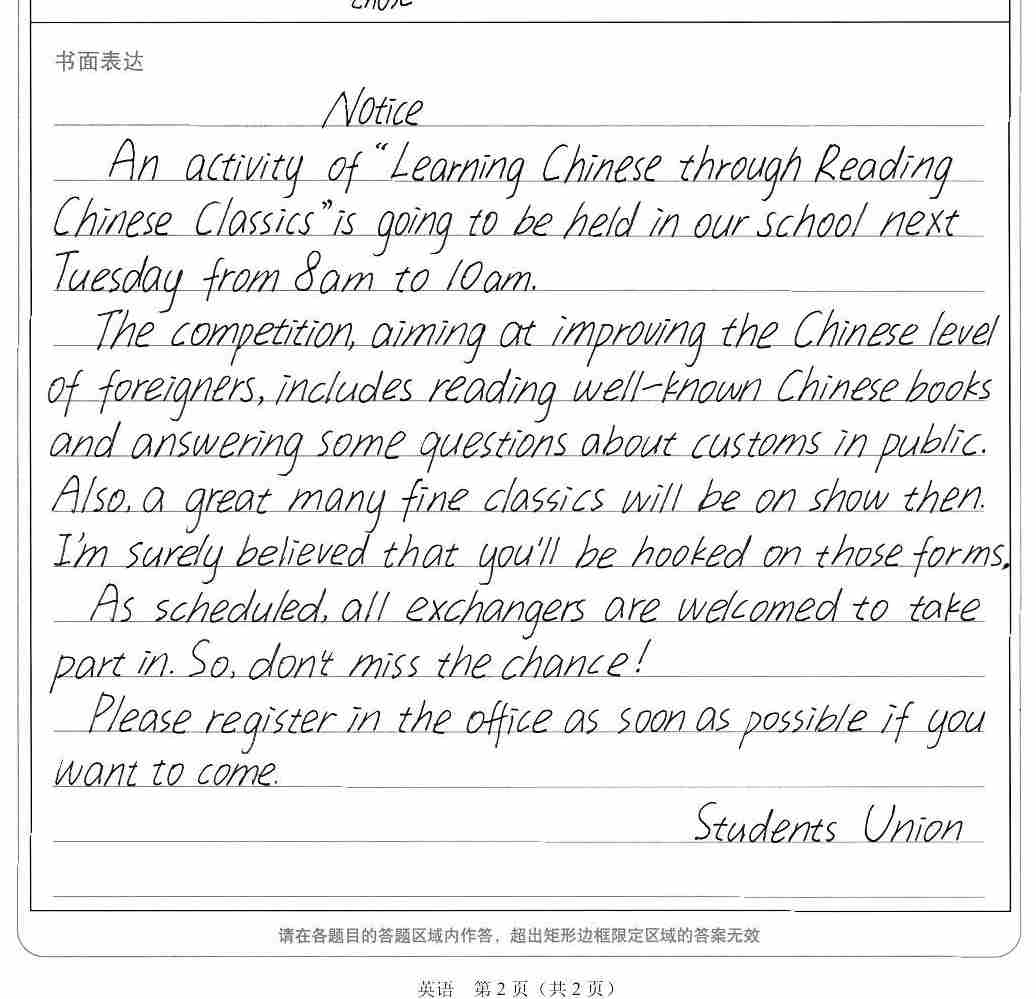 书面表达
Notice
An activity of “Learning Chinese through Reading
Chinese Classics” is going to be held in our school next
Tuesday from 8am to 10am.
The competition, aiming at improving the Chinese level
of foreigners, includes reading well-known Chinese books
and answering some questions about customs in public.
Also, a great many fine classics will be on show then.
I'm surely believed that you'll be hooked on those forms.
As scheduled, all exchangers are welcomed to take
part in. So, don't miss the chance!
Please register in the office as soon as possible if you
want to come.
Students Union
请在各题目的答题区域内作答，超出矩形边框限定区域的答案无效
英语 第2页（共2页）